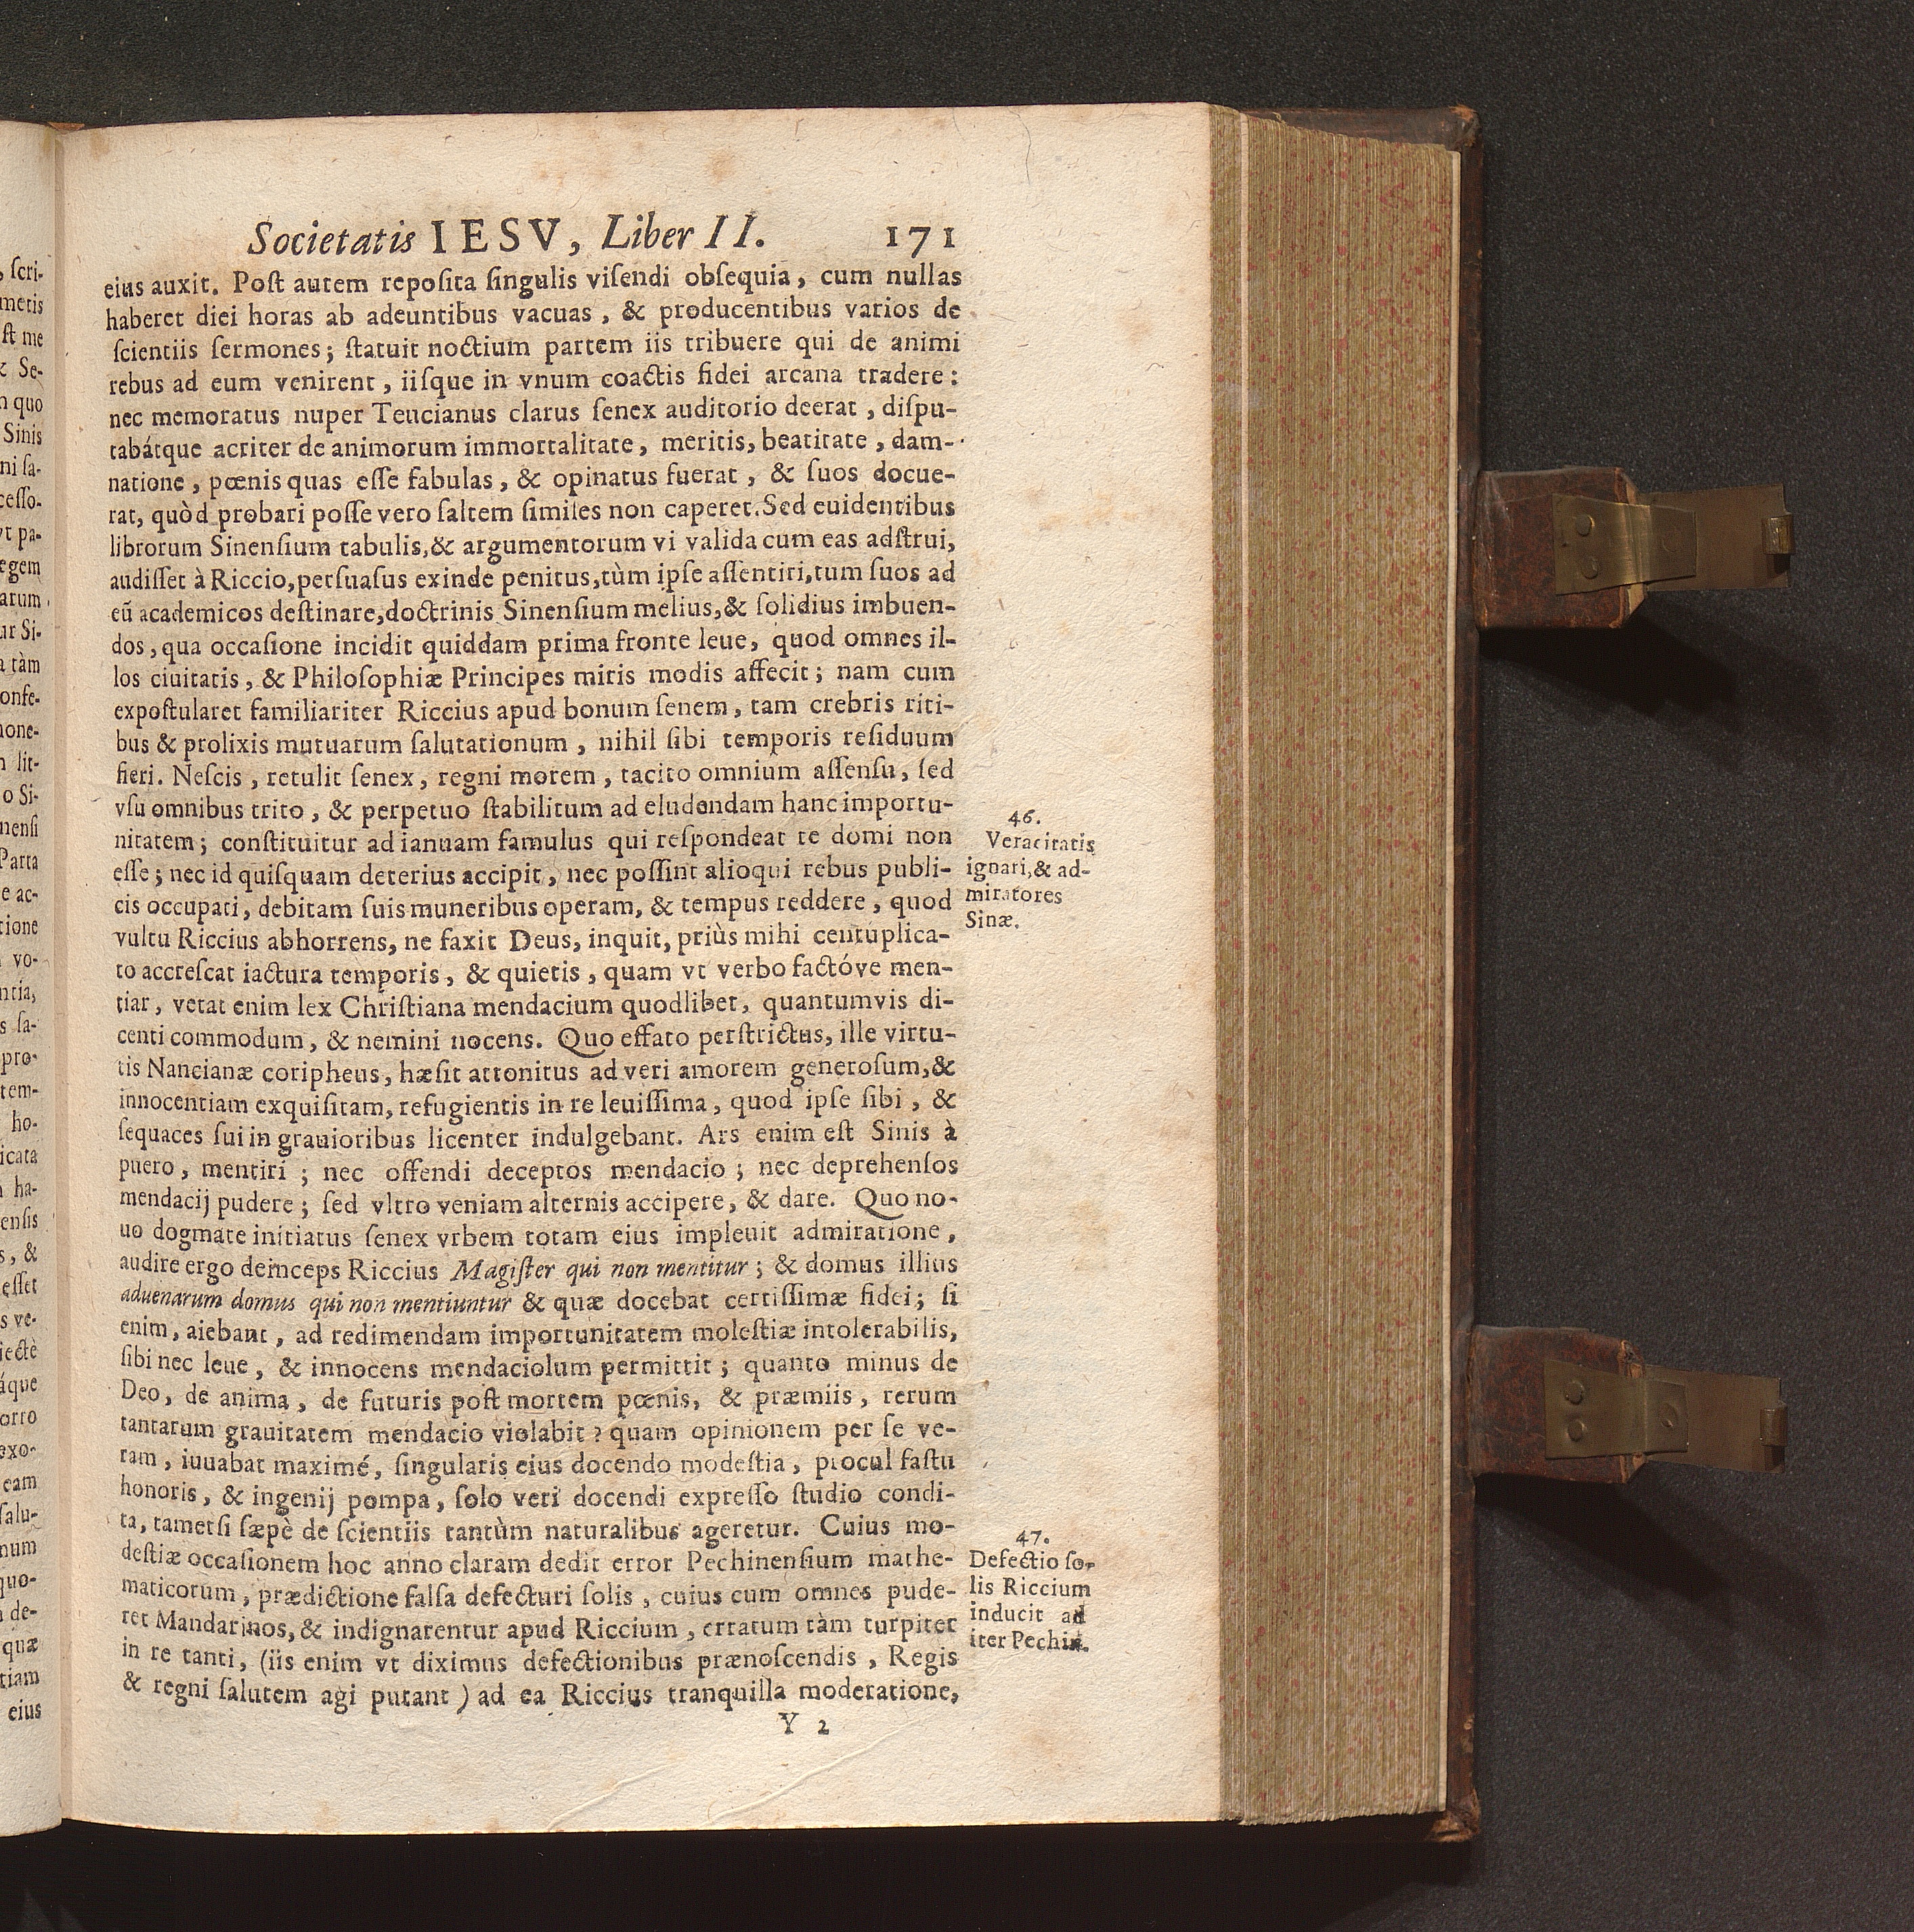 Societatis IESV, Liber II. 171
eius auxit. Post autem reposita singulis visendi obsequia, cum nullas
haberet diei horas ab adeuntibus vacuas, & producentibus varios de
scientiis sermones; statuit noctium partem iis tribuere qui de animi
rebus ad eum venirent, iisque in vnum coactis fidei arcana tradere:
nec memoratus nuper Teucianus clarus senex auditorio deerat, dispu-
tabátque acriter de animorum immortalitate, meritis, beatitate, dam-
natione, pœnis quas esse fabulas, & opinatus fuerat, & suos docue-
rat, quòd probari posse vero saltem similes non caperet. Sed euidentibus
librorum Sinensium tabulis, & argumentorum vi valida cum eas adstrui,
audisset à Riccio, persuasus exinde penitus, tùm ipse assentiri, tum suos ad
eũ academicos destinare, doctrinis Sinensium melius, & solidius imbuen-
dos, qua occasione incidit quiddam prima fronte leue, quod omnes il-
los ciuitatis, & Philosophiæ Principes miris modis affecit; nam cum
expostularet familiariter Riccius apud bonum senem, tam crebris riti-
bus & prolixis mutuarum salutationum, nihil sibi temporis residuum
fieri. Nescis, retulit senex, regni morem, tacito omnium assensu, sed
vsu omnibus trito, & perpetuo stabilitum ad eludendam hanc importu-
nitatem; constituitur ad ianuam famulus qui respondeat te domi non
esse; nec id quisquam deterius accipit, nec possint alioqui rebus publi-
cis occupati, debitam suis muneribus operam, & tempus reddere, quod
vultu Riccius abhorrens, ne faxit Deus, inquit, priùs mihi centuplica-
to accrescat iactura temporis, & quietis, quam vt verbo factóve men-
tiar, vetat enim lex Christiana mendacium quodlibet, quantumvis di-
centi commodum, & nemini nocens. Quo effato perstrictus, ille virtu-
tis Nancianæ coripheus, hæsit attonitus ad veri amorem generosum, &
innocentiam exquisitam, refugientis in re leuissima, quod ipse sibi, &
sequaces sui in grauioribus licenter indulgebant. Ars enim est Sinis à
puero, mentiri; nec offendi deceptos mendacio; nec deprehensos
mendacij pudere; sed vltro veniam alternis accipere, & dare. Quo no-
uo dogmate initiatus senex vrbem totam eius impleuit admiratione,
audire ergo deinceps Riccius Magister qui non mentitur; & domus illius
aduenarum domus qui non mentiuntur & quæ docebat certissimæ fidei; si
enim, aiebant, ad redimendam importunitatem molestiæ intolerabilis,
sibi nec leue, & innocens mendaciolum permittit; quanto minus de
Deo, de anima, de futuris post mortem pœnis, & præmiis, rerum
tantarum grauitatem mendacio violabit? quam opinionem per se ve-
ram, iuuabat maximé, singularis eius docendo modestia, procul fastu
honoris, & ingenij pompa, solo veri docendi expresso studio condi-
ta, tametsi sæpè de scientiis tantùm naturalibus ageretur. Cuius mo-
destiæ occasionem hoc anno claram dedit error Pechinensium mathe-
maticorum, prædictione falsa defecturi solis, cuius cum omnes pude-
ret Mandarinos, & indignarentur apud Riccium, erratum tàm turpiter
in re tanti, (iis enim vt diximus defectionibus prænoscendis, Regis
& regni salutem agi putant) ad ea Riccius tranquilla moderatione,
Y 2
46.
Veracitatis
ignari, & ad-
miratores
Sinæ.
47.
Defectio so-
lis Riccium
inducit ad
iter Pechin.
, scri-
metis
st me
Se-
quo
Sinis
ni sa-
cesso-
vt pa-
egem
arum
ur Si-
a tàm
onfe-
none-
lit-
o Si-
nensi
Parta
e ac-
tione
vo-
ntia,
s sa-
pro-
tem-
ho-
icata
ha-
ensis
s, &
esset
s ve-
iectè
áque
orro
exo-
eam
salu-
num
quo-
de-
quæ
tiam
eius